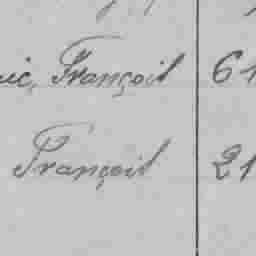 uic, François 61
François 21